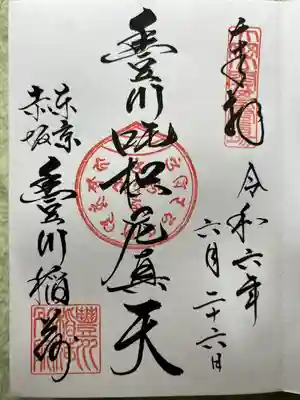 奉拝
令和六年
六月二十六日
豊川吒枳尼真天
東京
赤坂
豊川稲荷